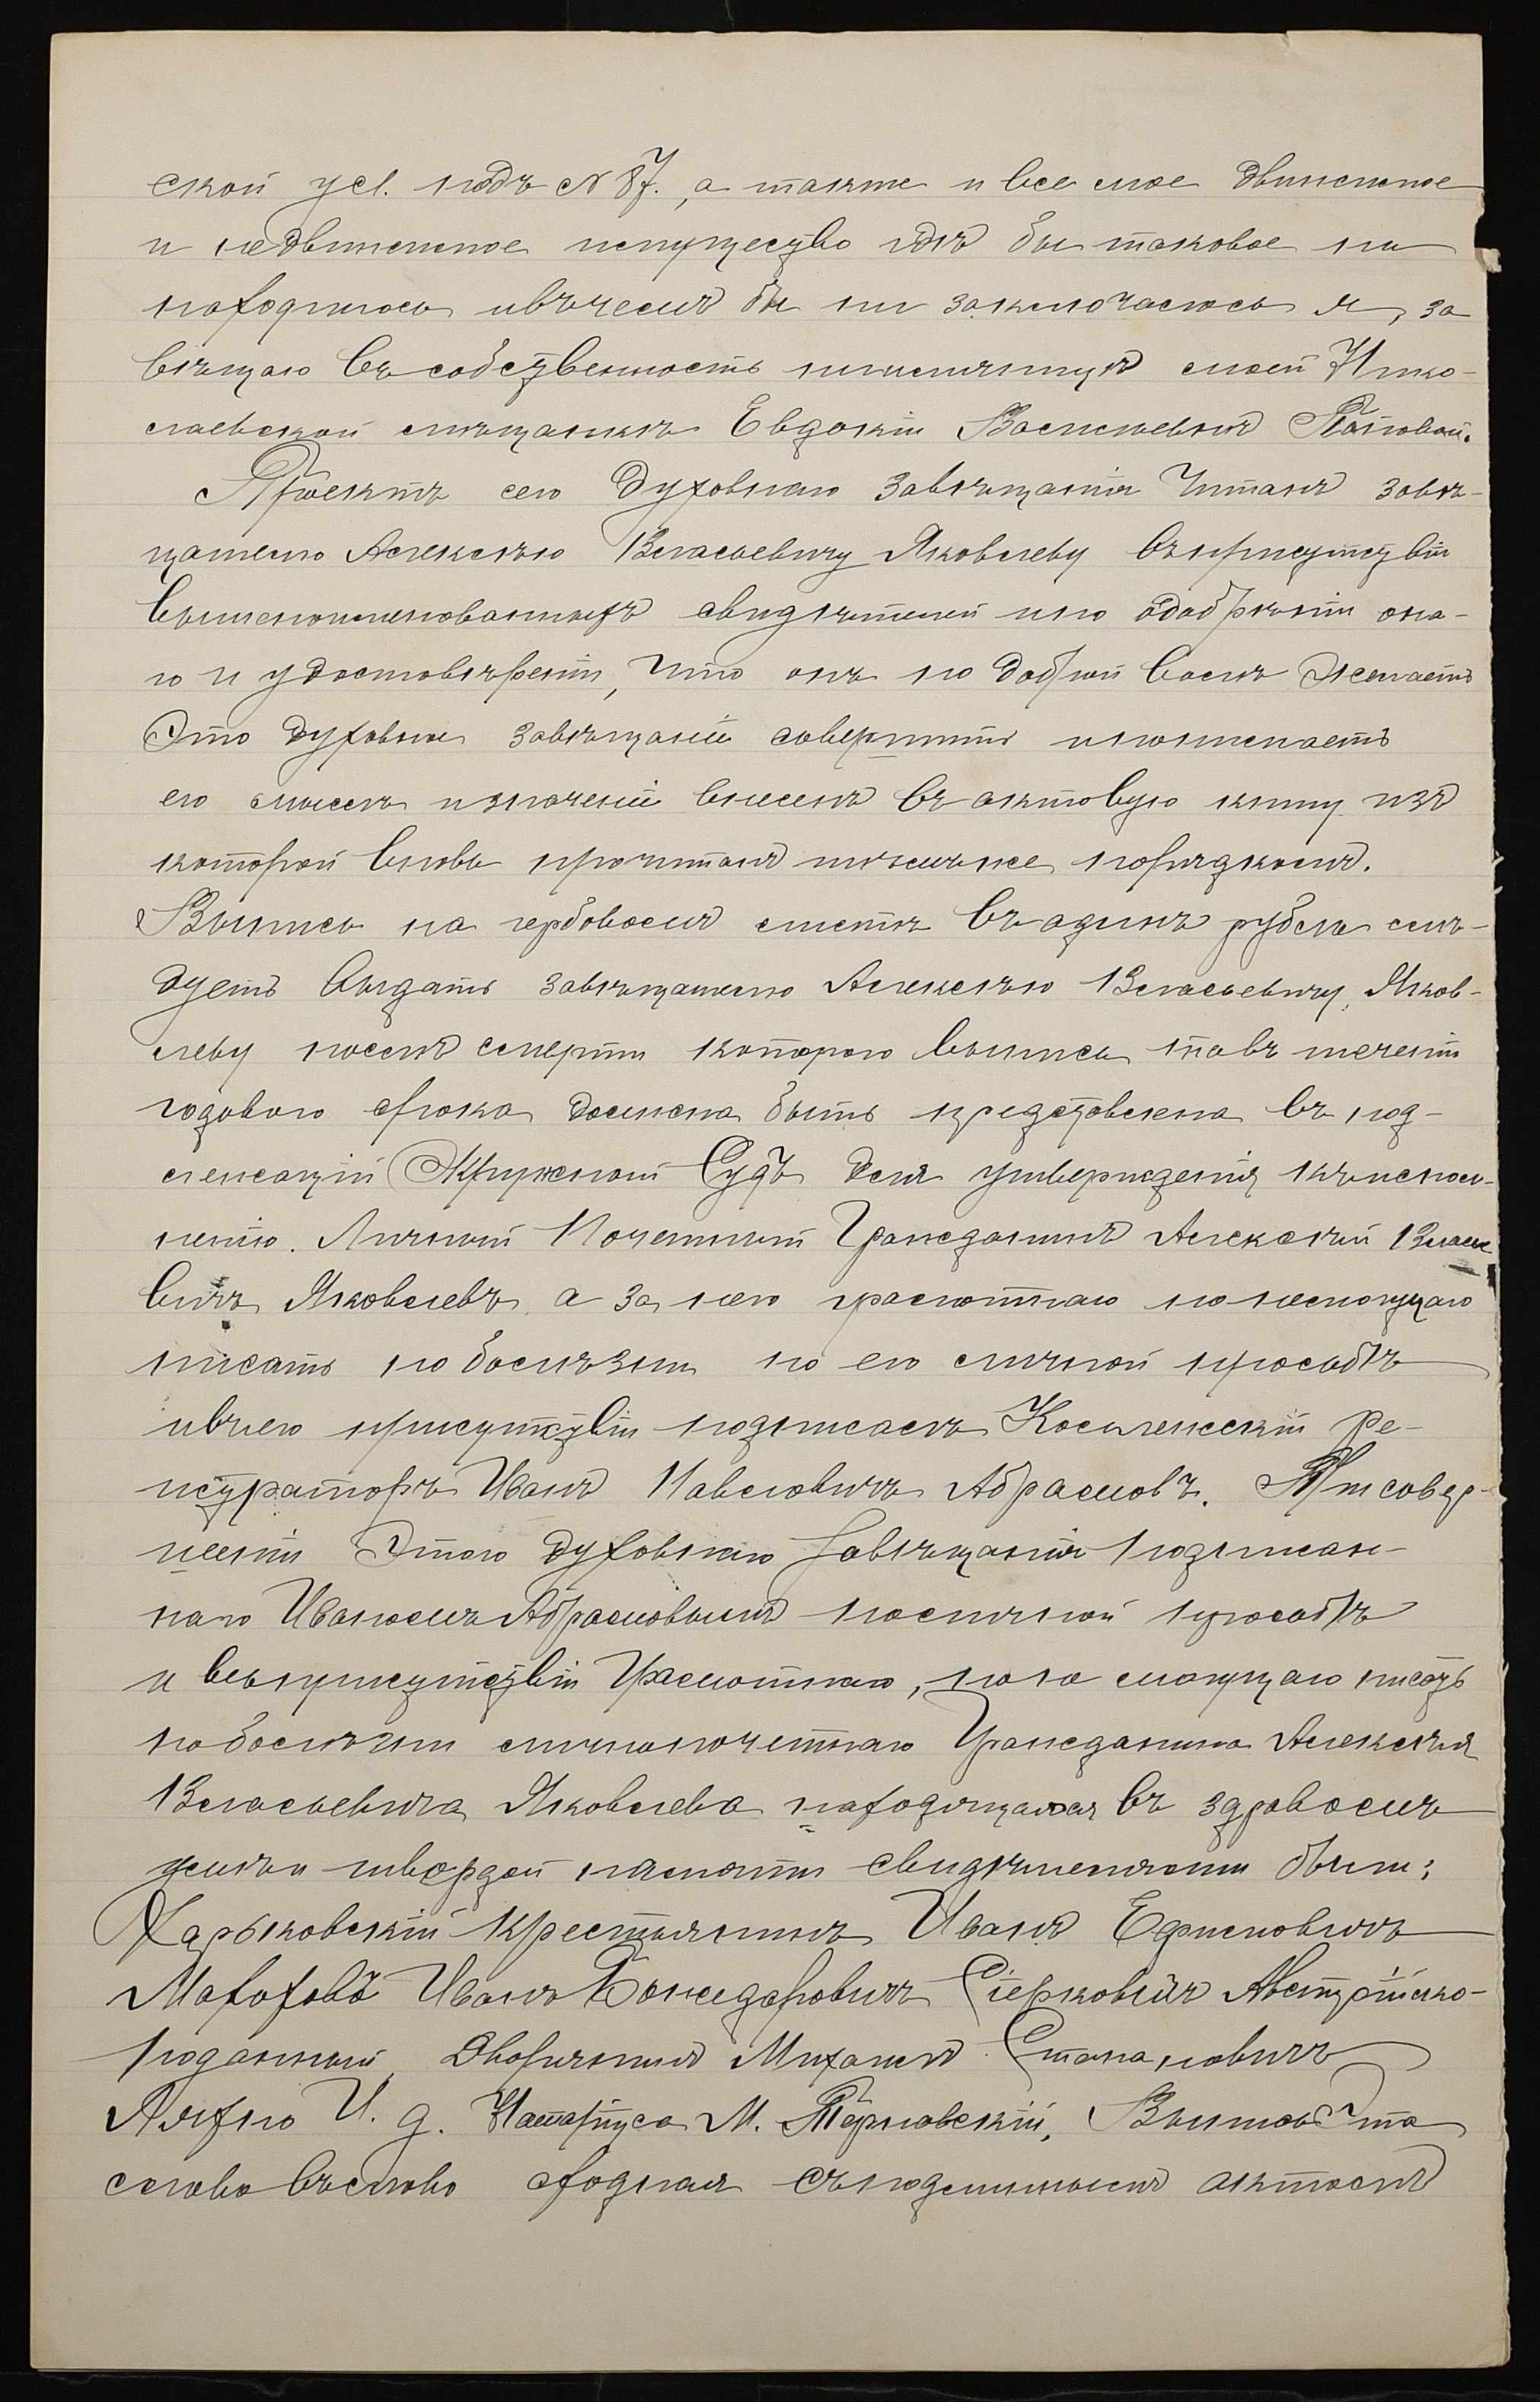 ской ул. подъ № 87., а также и все мое движимое
и недвижимое имущество гдѣ бы таковое ни
находилось ивъчемъ бы ни заключалось я, за
вѣщаю въ собственность племянницѣ моей Нико-
лаевской мѣщанкѣ Евдокіи Васильевнѣ Поповой.
Проектъ сего духовнаго завѣщанія читанъ завѣ-
щателю Алексѣю Власьевичу Яковлеву въприсутствіи
вышепоименованныхъ свидѣтелей ипо одобрѣніи она-
го и удостовѣреніи, что онъ по доброй волѣ желаетъ
Это духовное завѣщаніе совершить ипонимаетъ
его смыслъ изначеніе внесенъ въ актовую книгу изъ
которой вновь прочитанъ тѣмъже порядкомъ.
Выпись на гербовомъ листѣ въ одинъ рубль слѣ-
дуетъ выдать завѣщателю Алексѣю Власьевичу Яков-
леву послѣ смерти котораго выпись этавъ теченіи
годового срока должна быть представлена въ под-
лежащій Окружной Судъ для утвержденія къ испол-
ненію. Личный Почетный Гражданинъ Алексѣй Власье
вичъ Яковлевъ, а за него грамотнаго но немогущаго
писать по болѣзни по его личной просьбѣ
ивъего присутствіи подписалъ Коллежскій Ре-
гистраторъ Иванъ Павловичъ Абрамовъ. При совер-
шеніи Этого духовнаго Завѣщанія подписан-
наго Иваномъ Абрамовымъ поличной просьбѣ
и въприсутствіи Грамотнаго, но не могущаго писать
поболѣзни личнопочетнаго Гражданина Алексѣя
Власьевича Яковлева находящагося въ здравомъ
умѣ и твердой памяти свидѣтелями были:
Харьковскій крестьянинъ Иванъ Ефимовичъ
Иванъ Божидаровичъ Австрійско-
подданный, Дворянинъ Михаилъ Степановичъ
Ляхно И. д. Нотаріуса М. Терновскій, Выпись Эта
слово въслово сходная съподлиннымъ актомъ